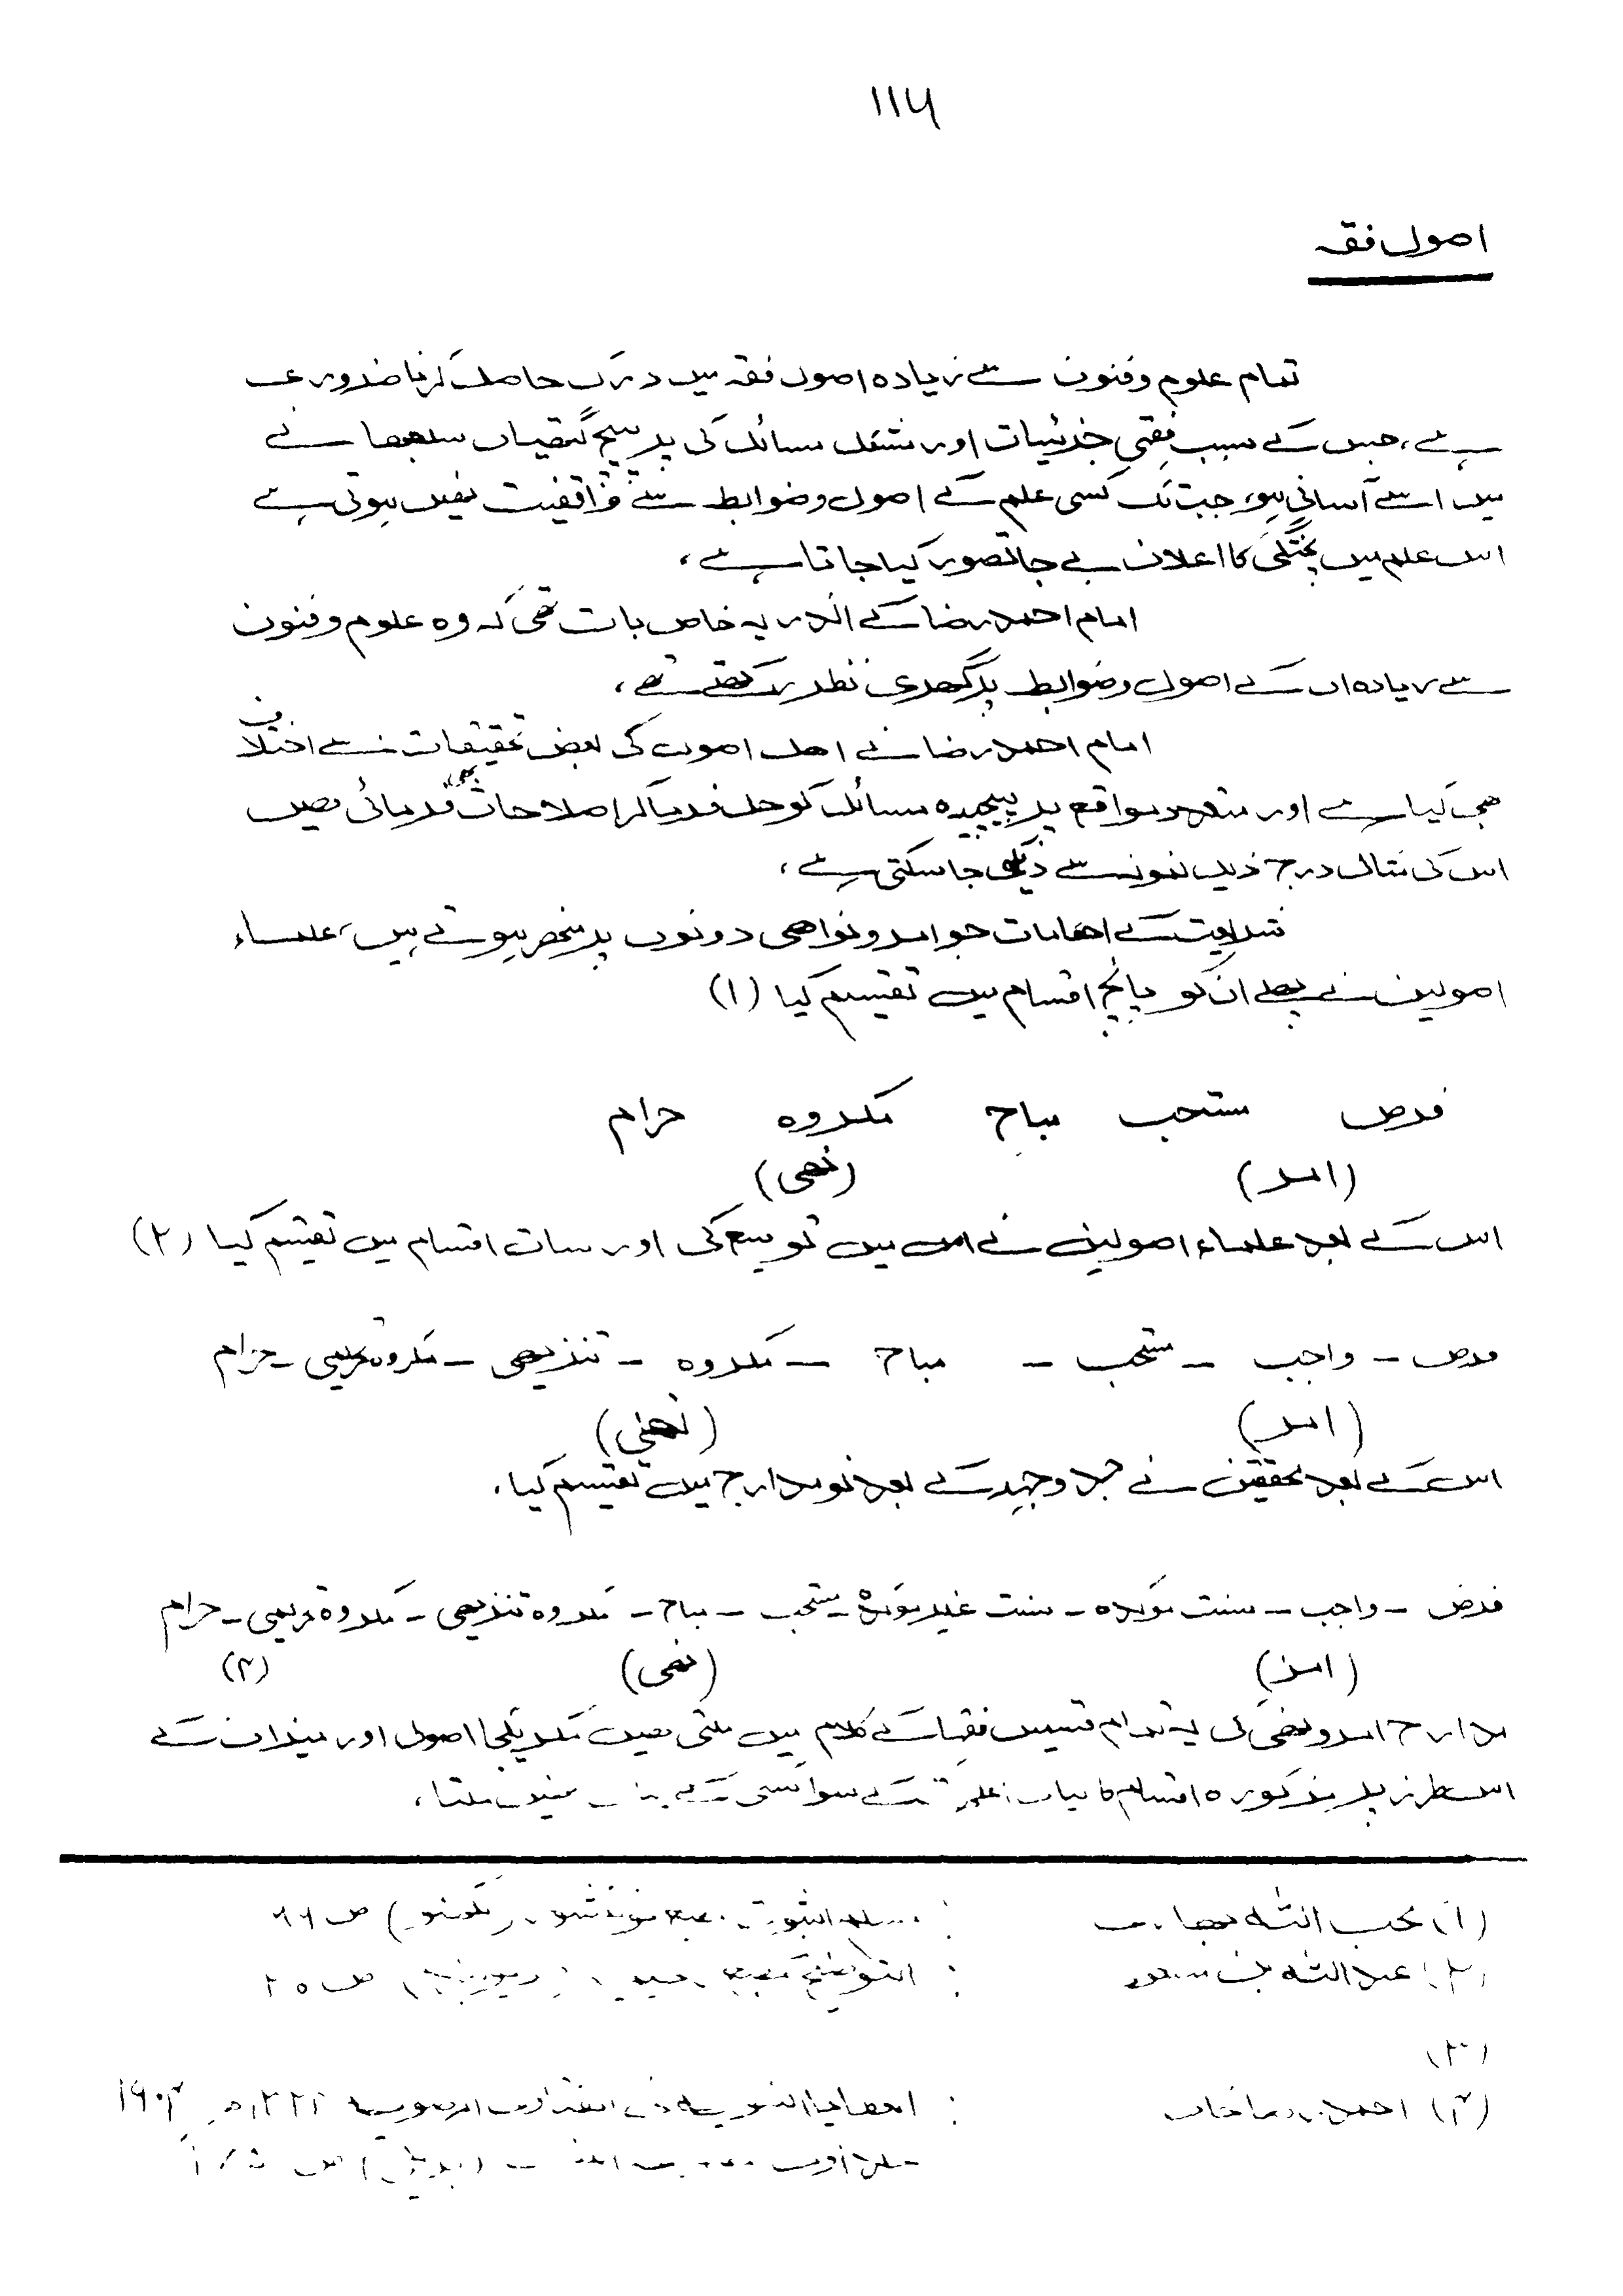 ۱۱۶
اصول فقہ
تمام علوم و فنون سے زیادہ اصول فقہ میں درک حاصل کرنا ضروری
ہے، جس کے سبب فقہی جزئیات اور مشکل مسائل کی پر پیچ گتھیاں سلجھانے
میں اسے آسانی ہو، جب تک کسی علم کے اصول و ضوابط سے واقفیت نہیں ہوتی ہے
اس علم میں پختگی کا اعلان بے جا تصور کیا جاتا ہے،
امام احمد رضا کے اندر یہ خاص بات تھی کہ وہ علوم و فنون
سے زیادہ ان کے اصول و ضوابط پر گہری نظر رکھتے تھے،
امام احمد رضا نے اہل اصول کی بعض تحقیقات سے اختلاف
بھی کیا ہے اور متعدد مواقع پر پیچیدہ مسائل کو حل فرما کر اصلاحات بھی فرمائی ہیں
اس کی مثال درج ذیل نمونہ سے دیکھی جا سکتی ہے،
شریعت کے احکامات جو امر و نواہی دونوں پر منحصر ہوتے ہیں، علماء
اصولین نے پہلے ان کو پانچ اقسام میں تقسیم کیا (۱)
فرض مستحب مباح مکروہ حرام
(امر) (نہی)
اس کے بعد علماء اصولین نے اس میں توسیع کی اور سات اقسام میں تقسیم کیا (۲)
فرض ۔ واجب ۔ مستحب ۔ مباح ۔ مکروہ ۔ تنزیہی ۔ مکروہ تحریمی ۔ حرام
(امر) (نہی)
اس کے بعد محققین نے جد و جہد کے بعد نو مدارج میں تقسیم کیا،
فرض ۔ واجب ۔ سنت موکدہ ۔ سنت غیر موکدہ ۔ مستحب ۔ مباح ۔ مکروہ تنزیہی ۔ مکروہ تحریمی ۔ حرام
(امر) (نہی) (۳)
مدارج امر و نہی کی یہ تمام قسمیں فقہا کے کلام میں ملتی ہیں مگر یکجا اصولی اور میزان کے
اس طرز پر مذکورہ اقسام کا بیان کے سوا کسی کے نہیں ملتا،
(۱) محب اللہ بہاری : مسلم الثبوت (لکھنو) ص ۶۶
(۲) عبداللہ بن مسعود : التوضیح ص ۲۵
(۳)
(۴) احمد رضا خاں : العطایا النبویہ فی الفتاوی الرضویہ